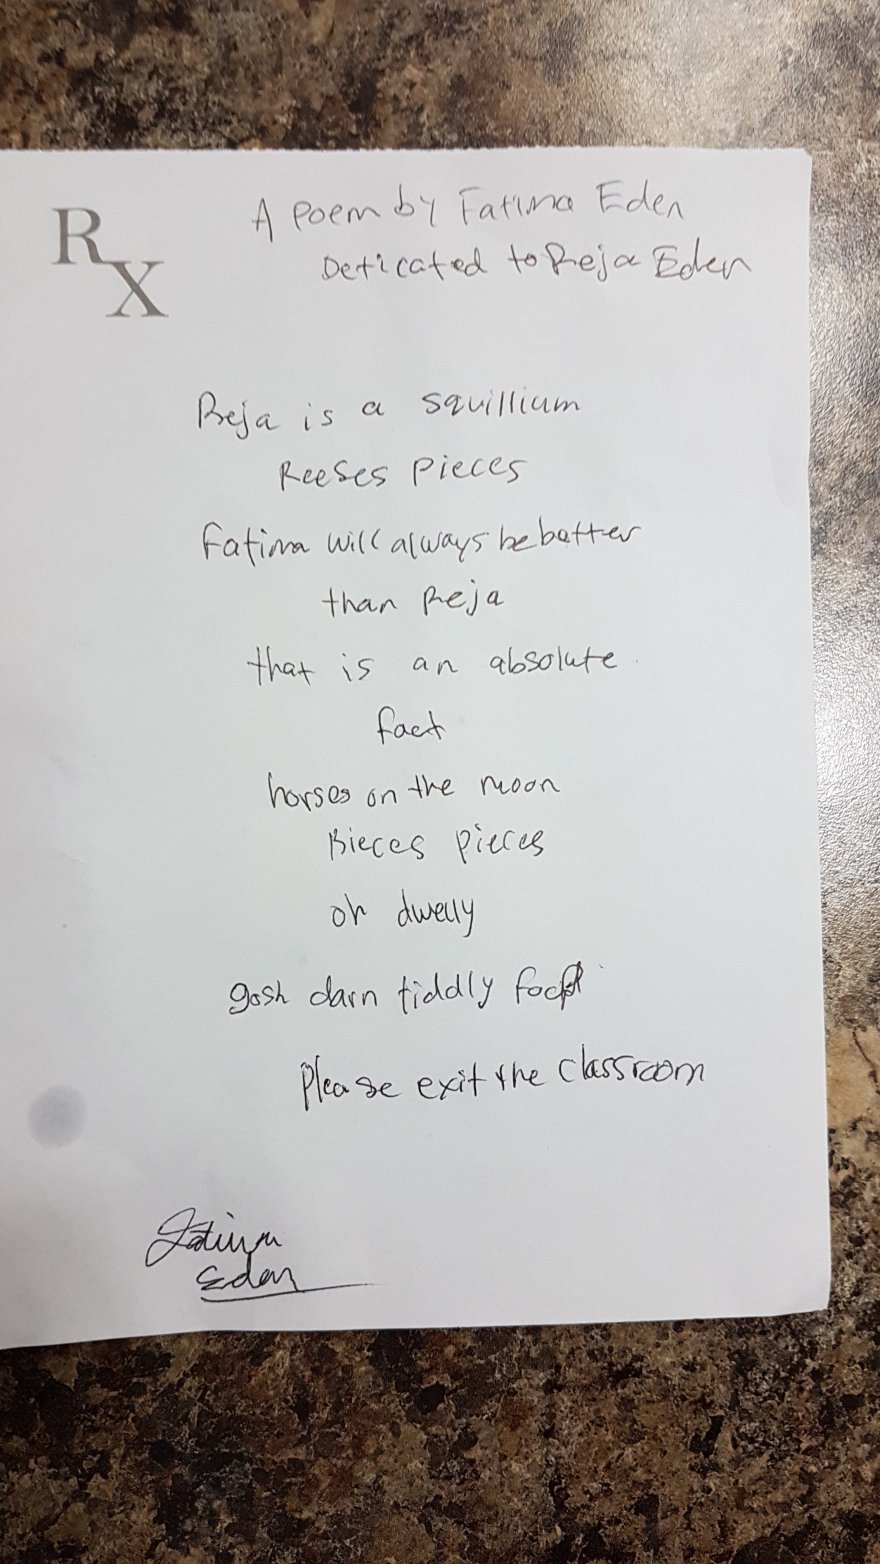 RX
A poem by Fatima Eden
Deticated to Reja Eden
Reja is a squillium
Reeses pieces
Fatima will always be batter
than Reja
that is an absolute
fact
horses on the moon
Bieces pieces
oh dwelly
gosh darn tiddly
Please exit the classroom
Fatima
Eden